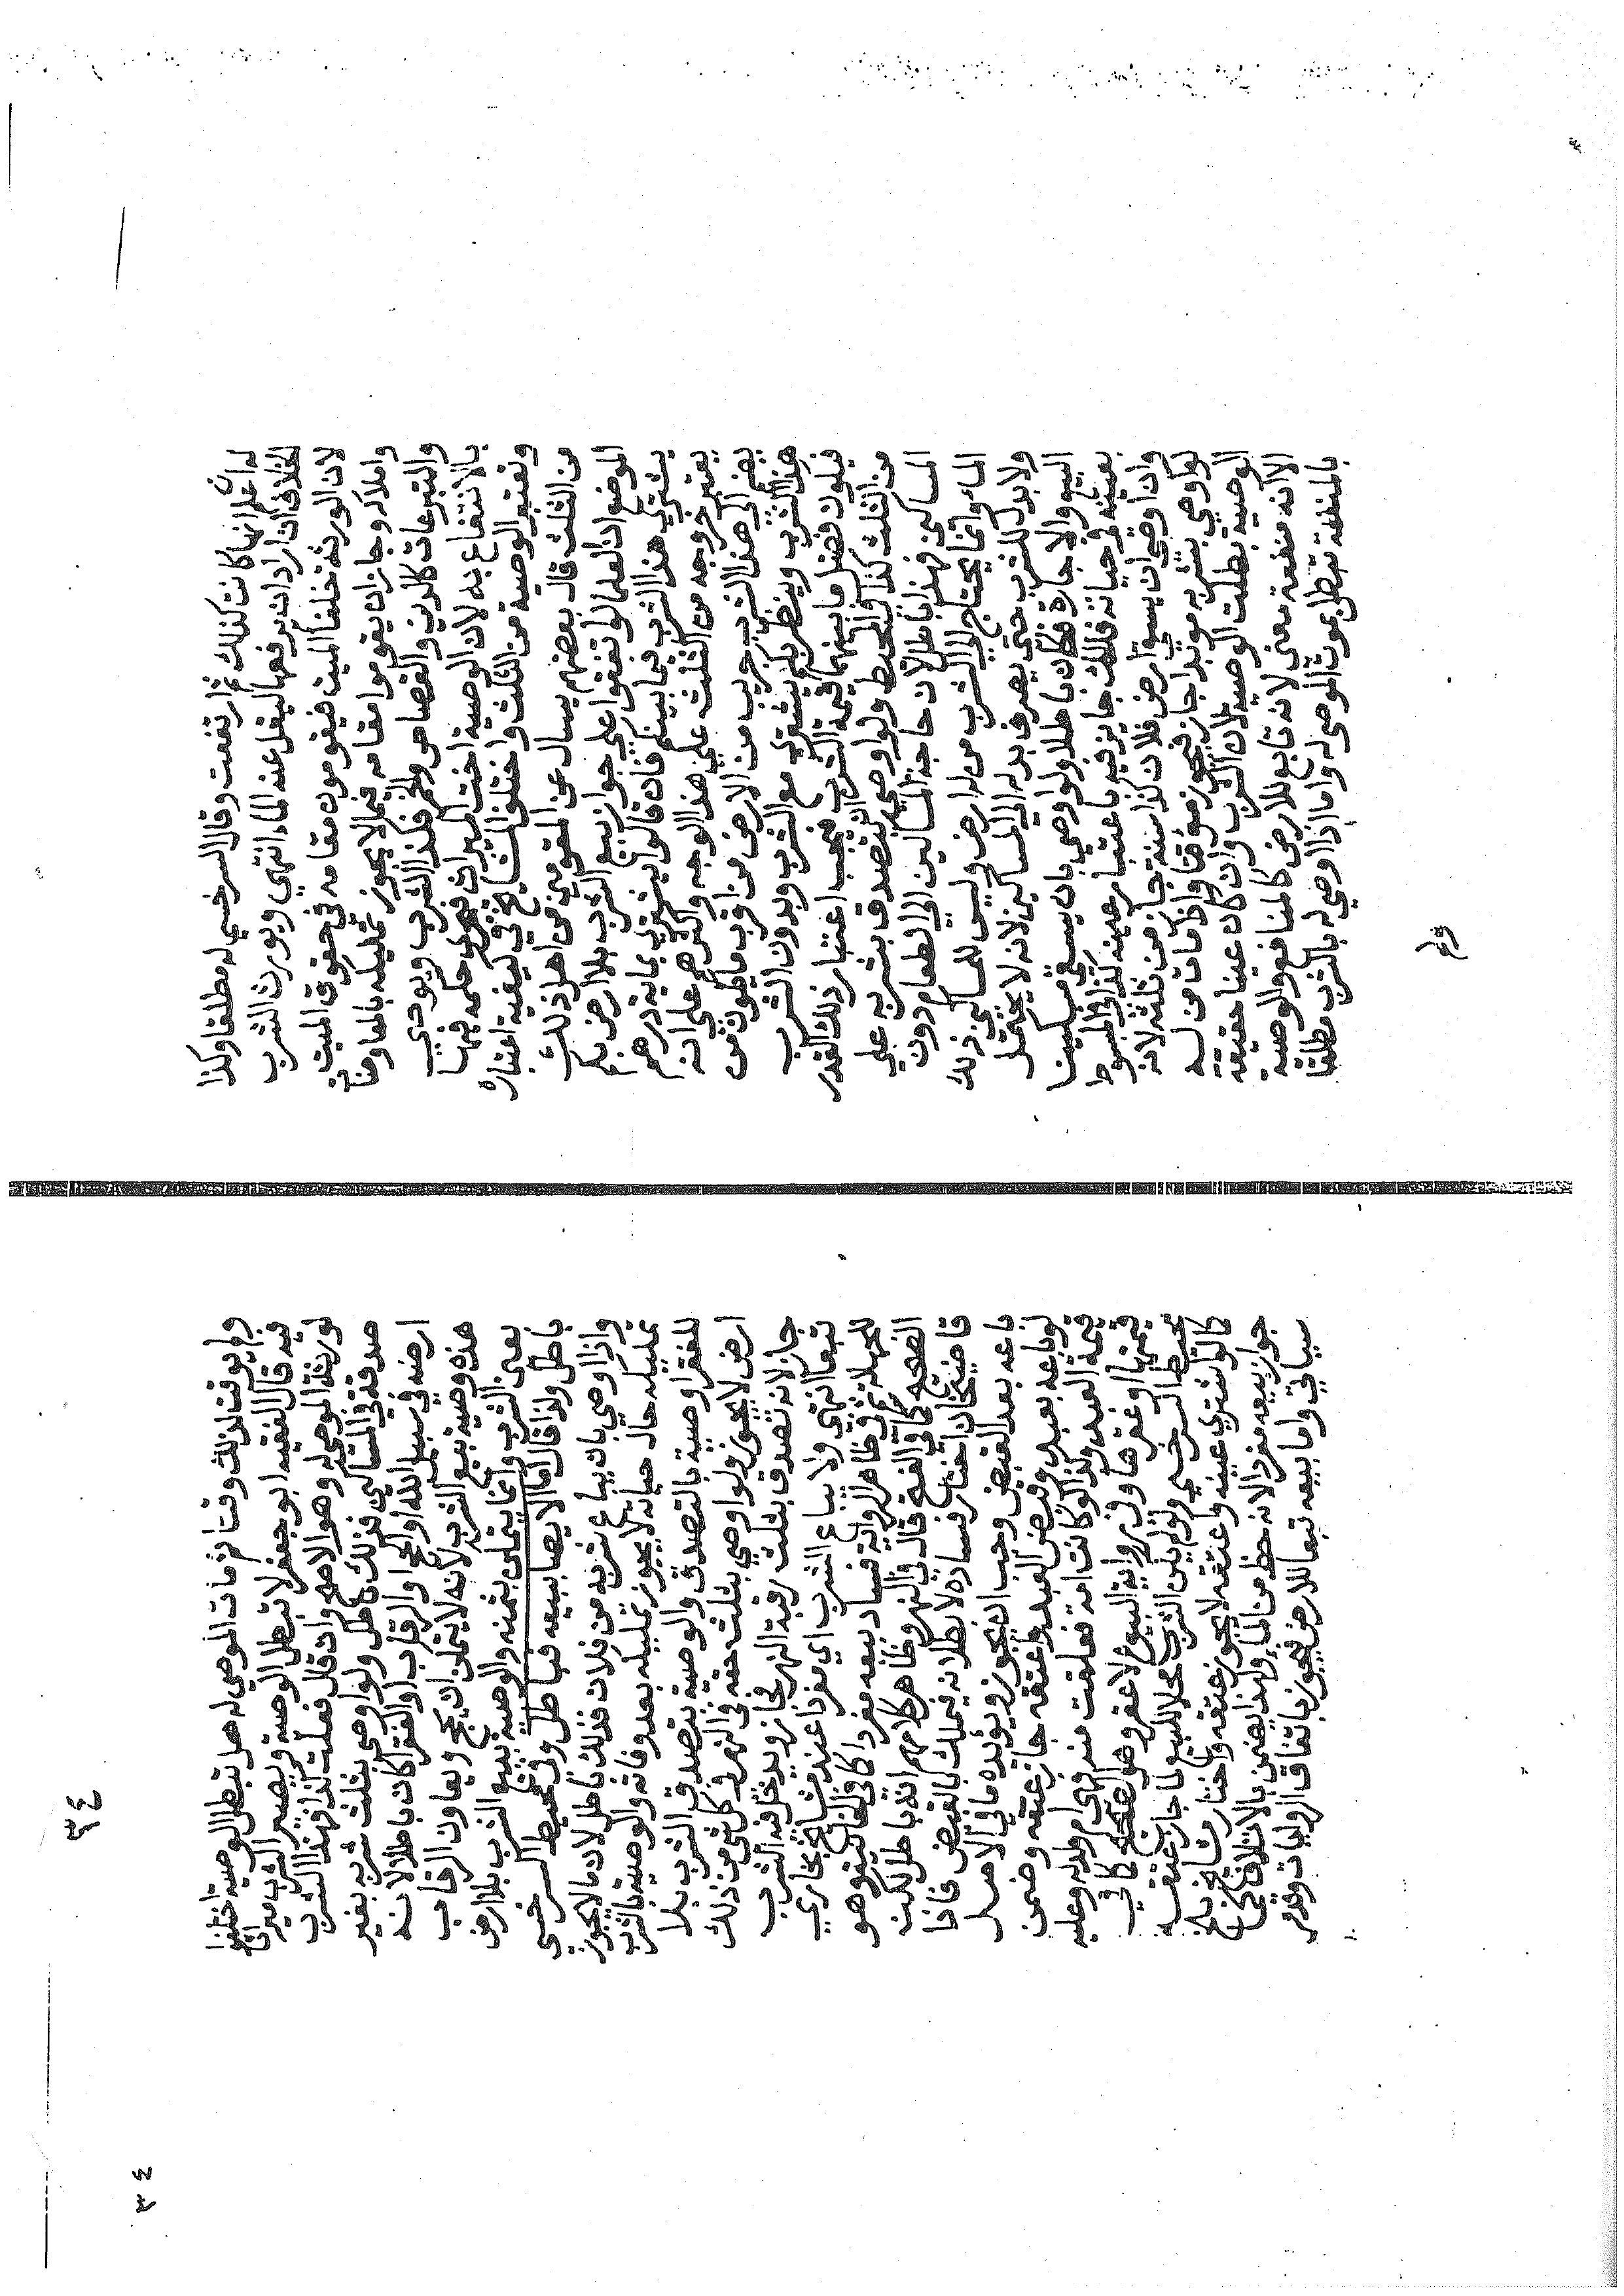 له اعلم انها كانت كذلك ثم ارتفعت وقال السرخسي له مطلقا وكذا
الخلاف ان اراد انه يرفعها ليقل عنه الماء انتهي ويورث الشرب
لان الورثة خلفا الميت فيقومون مقامه في حقوق الميت
واملاكه وجاز ان يقوموا مقامه فيما لا يجوز تمليكه بالمعاوضات
والتبرعات كالدين والقصاص والخمر فكذا الشرب ويوصي
بالانتفاع به لان الوصية اخت الميراث فيجري حكمه فيها
وتعتبر الوصية من الثلث واختلف المشايخ في كيفية اعتباره
من الثلث قال بعضهم يسال عن المقومين من اهل ذلك
الموضع ان العلما لو اتفقوا علي جواز بيع الشرب بلا ارض بكم
يشتري هذا الشرب فيما بينكم فان قالوا يشتري بماية درهم
يعتبر خروجه من الثلث علي هذا الوجه واكثرهم على انه
يضم الى هذا الشرب جريب من الارض من اقرب ما يكون من
هذا الشرب وينظر بكم يشتري مع الشرب وبدون الشرب
فيكون فضل ما بينهما قيمة الشرب فيجب اعتبار ذلك القدر
من الثلث كذا في المحيط ولو اوصي ان يتصدق بشربه علي
المساكين فهذا باطل لان حاجة المساكين الى الطعام دون
الماء وانما يحتاج الى الشرب من له ارض وليس للمساكين ذلك
ولا بدل للشرب حتى يصرف بدله الي المساكين لانه لا يحتمل
البيع والاجارة فكان باطلا ولو اوصي بان يسقي مسكينا
بعينه في حياته فذلك جايز فيه باعتبار عينه كذا في المبسوط
وان اوصى ان يسقي ارض فلان كذا سنة جاز من ثلثه لانه
لو اوصي بشربه موبدا جاز فيجوز موقتا واذا مات من له
الوصية بطلت الوصية لان الشرب وان كان عينا حقيقة
الا انه منفعة معنى لانه تابع للارض كالمنافع والوصية
بالمنفعة تبطل بموت الموصى له واما اذا اوصي له بالشرب مطلقا
ولم
ولم يوقت لذلك وقتا ثم مات الموصي له هل تبطل الوصية اختلفوا
فيه قال الفقيه ابو جعفر لا تبطل الوصية ويصير الشرب ميراثا
لورثة الموصى له وهو الاصح وان قال فعلت كذا فهذا الشرب
صدقة في المساكين فذلك باطل ولو اوصى بثلث شربه بغير
ارضه في سبيل الله او الحج او الرقاب او الفقرا كان باطلا لانه
هذه وصية ببيع الشرب لانه لا يتملن ان يحج ويعاون الرقاب
بعين الشرب وانما يتملن بثمنه والوصية ببيع الشرب بلا ارض
باطل ولذا قال اما الايصا ببيعه فباطل وفي محيط السرخسي
واذا اوصي بان يباع شربه من فلان فذلك باطل لان ما لا يجوز
تمليكه حال حياته لا يجوز تمليكه بعد وفاته والوصية بالشرب
للفقرا وصية بالتصدق والوصية بتصدق الشرب بلا
ارض لا يجوز ولو اوصي بثلث حقه في النهر في كل شي من ذلك
جاز لانه تصدق بثلث رقبة النهر فجاز ويدخل فيه الشرب
تبعا انتهي ولا يباع الشرب اي مفردا عند مشايخ بخاري
للجهالة ثم في ظاهر الرواية فساد بيعه مفردا كافي الخانية وهو
الصحيح كما في الفتح قال في النهر وظاهر كلامهم انه باطل لكن
قاضيخان افتى بفساده لا بطلانه فيملك بالقبض فاذا
باعه بعد القبض وجب ان يجوز ويؤيده ما في الاصل
لو باعه بعبد وقبض العبد واعتقه جاز عتقه وضمن
قيمة العبد وكذا لو كانت امة تعلقت منه فهي ام ولد له وعليه
قيمتها وعقرها وفي رواية البيوع لا عقر وهو الصحيح كما في
محيط السرخسي ولو لم يكن الشرب محلا للبيع لما جاز عتقه
كما لو اشتري عينه واعتقه لا يجوز عتقه واختار مشايخ بلخ
جواز بيعه مفردا لانه حظ من الماء ولهذا يضمن بالاتلاف كما
سياتي واما بيعه تبعا للارض فيجوز باتفاق الروايات وقدم
٣٤
٣٤